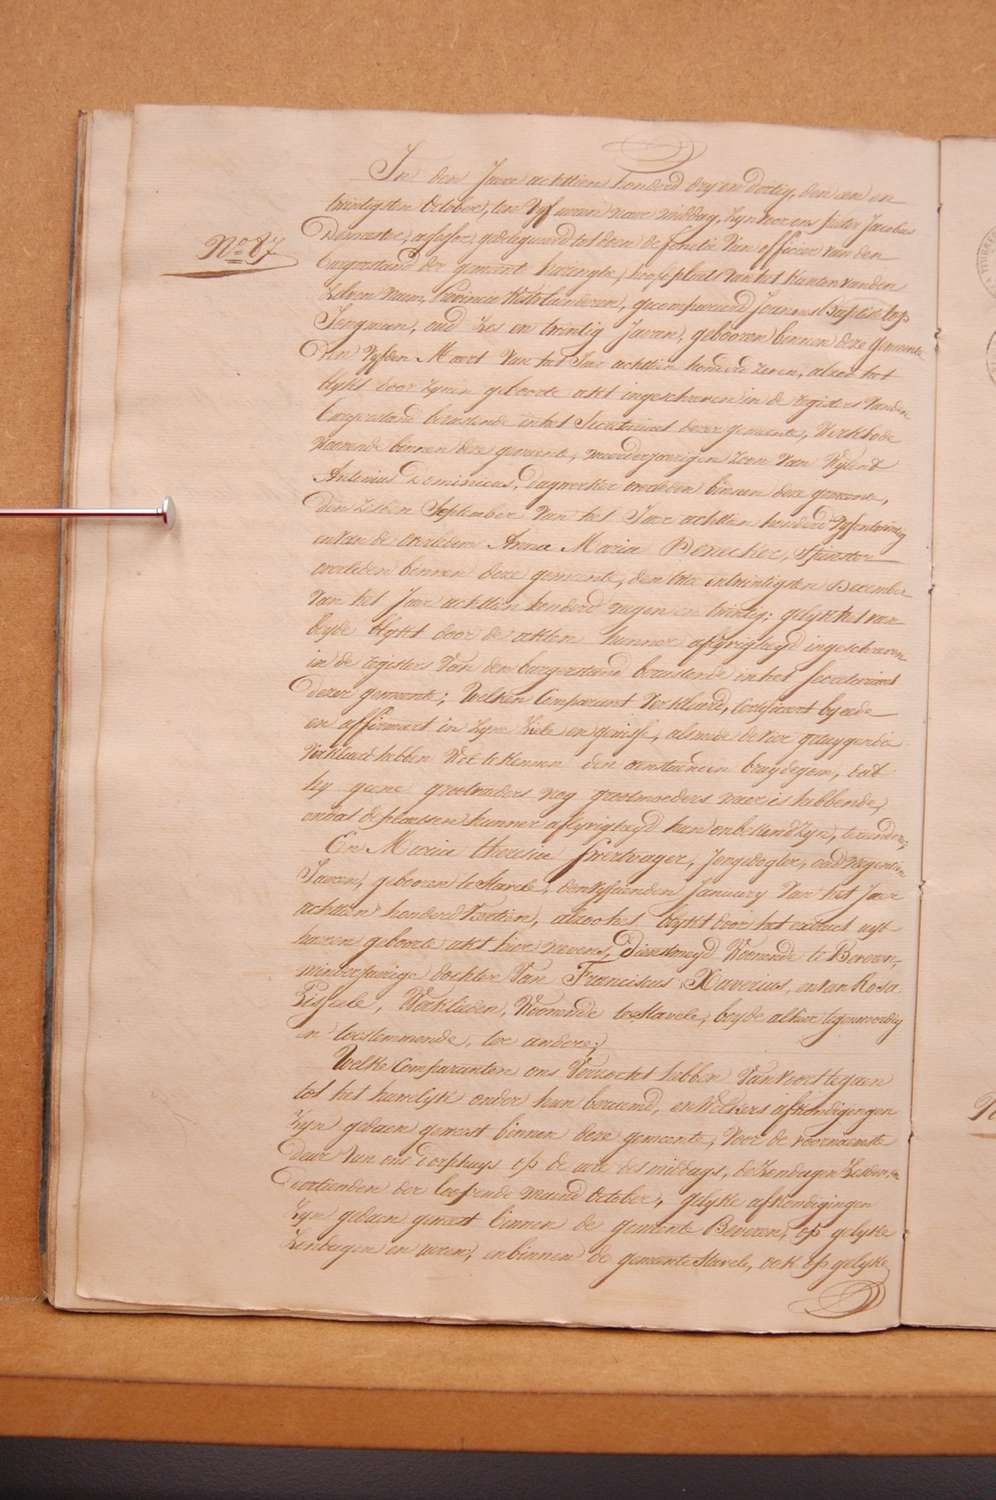 No 87
In den Jare achttien honderd dry en dertig, den een en
twintigsten October, ten Vyf uren naer middag, Zyn voor ons pieter Jacobus
Demeester, assessor, gedelegueerd tot doen de fonctie Van officier van den
burgerstand der gemeente haringhe, hoofdplaets van het kanton van den
Zelven naem, Provincie Westvlaenderen, gecompareerd Joannes Baptiste
Jongman, oud Zes en twintig Jaeren, gebooren binnen deze gemeente
den Vyfden Maert Van het Jaer achttien honderd zeven, alzoo het
blykt door Zynen geboorte akt ingeschreven in de registers Vanden
burgerstand berustende in het Secretariaet dezer gemeente, Werkbode
Woonende binnen deze gemeente, meerderjaerigen Zoon Van Wylent
Antonius Dominicus, dagwerker overleden binnen deze gemeente,
den Zesden September Van het Jaer achttien honderd Vyfentwintig
en van de overleden Anna Maria Spinster
overleden binnen deze gemeente, den een en twintigsten December
Van het Jaer achttien honderd negen en twintig; gelyk het van
beyde blykt door de akten hunner aflyvigheyd ingeschreven
in de registers Van den burgerstand berustende in het Secretariaet
dezer gemeente; Welken Comparant Verklaerd, by eede
en affirmeert in Zyne Ziele en gewisse, alsmede de vier getuygen die
Verklaerd hebben Wel te kennen den aenstaenden bruydegom, dat
hy geene grootvaders nog grootmoeders meer is hebbende,
en dat de plaetsen hunner aflyvigheyd hun onbekend Zyn, ter eender;
En Maria theresia Jongedogter, oud negentien
Jaeren, gebooren te Stavele, den Vyftienden January Van het Jaer
achttien honderd Veertien, alzoo het blykt door het extract uyt
haeren geboorte akt hier nevens, Dienstmeyd Woonende te Beveren,
minderjaerige dochter Van Franciscus Xaverius, en van Rosa
Werklieden, Woonende te Stavele, beyde alhier tegenwoordig
en toestemmende, ter andere;
Welke Comparanten ons Verzocht hebben Van voort te gaen
tot het huwelyk onder hun beraemd, en Welkers afkondigingen
Zyn gedaen geweest binnen deze gemeente, Voor de voornaemste
deur Van ons dorphuys op de ure des middags, de Zondagen Zesden, en
dertienden der loopende maend October, gelyke afkondigingen
Zyn gedaen geweest binnen de gemeente Beveren, op gelyke
Zondagen en uren, en binnen de gemeente Stavele, ook op gelyke